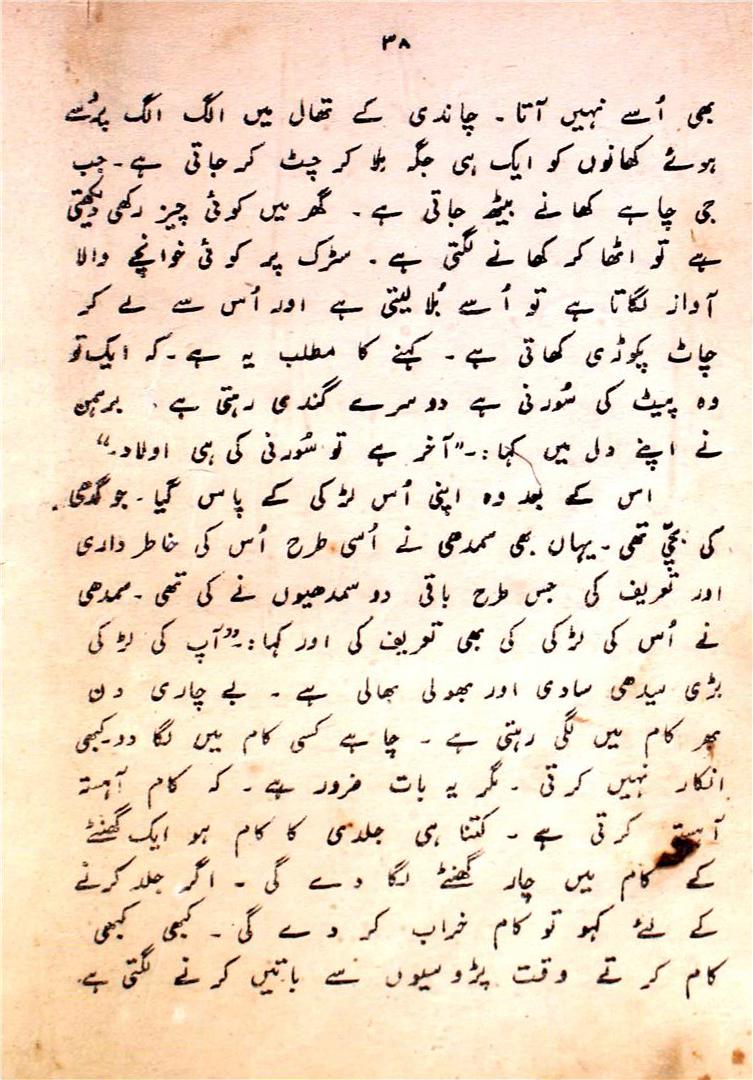 ۳۸
بھی اُسے نہیں آتا ۔ چاندی کے تھال میں الگ الگ پرُسے
ہوئے کھانوں کو ایک ہی جگہ ملا کر چٹ کر جاتی ہے ۔ جب
جی چاہے کھانے بیٹھ جاتی ہے ۔ گھر میں کوئی چیز رکھی دیکھتی
ہے تو اٹھا کر کھانے لگتی ہے ۔ سڑک پر کوئی خوانچے والا
آواز لگاتا ہے تو اُسے بُلا لیتی ہے اور اُس سے لے کر
چاٹ پکوڑی کھاتی ہے ۔ کہنے کا مطلب یہ ہے ۔ کہ ایک تو
وہ پیٹ کی سُورنی ہے دوسرے گندی رہتی ہے ۔ برہمن
نے اپنے دل میں کہا :۔ "آخر ہے تو سُورنی کی ہی اولاد۔"
اس کے بعد وہ اپنی اُس لڑکی کے پاس گیا ۔ جو گدھی
کی بچّی تھی ۔ یہاں بھی سمدھی نے اُسی طرح اُس کی خاطر داری
اور تعریف کی جس طرح باقی دو سمدھیوں نے کی تھی ۔ سمدھی
نے اُس کی لڑکی کی بھی تعریف کی اور کہا :۔ "آپ کی لڑکی
بڑی سیدھی سادی اور بھولی بھالی ہے ۔ بے چاری دن
بھر کام میں لگی رہتی ہے ۔ چاہے کسی کام میں لگا دو۔ کبھی
انکار نہیں کرتی ۔ مگر یہ بات ضرور ہے ۔ کہ کام آہستہ
آہستہ کرتی ہے ۔ کتنا ہی جلدی کا کام ہو ایک گھنٹے
کے کام میں چار گھنٹے لگا دے گی ۔ اگر جلد کرنے
کے لئے کہو تو کام خراب کر دے گی ۔ کبھی کبھی
کام کرتے وقت پڑوسیوں سے باتیں کرنے لگتی ہے